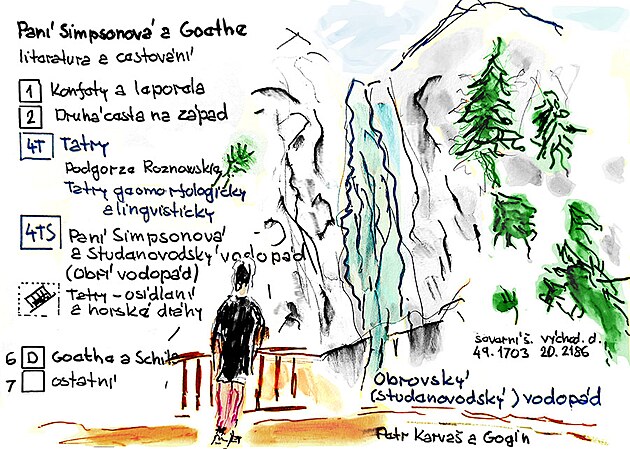 Paní Simpsonová a Goethe
literatura a cestování
1 Konfety a laporela
2 Druhá cesta na západ
4T Tatry
Podgorze Roznowskie
Tatry geomorfologicky
a lingvisticky
4TS Paní Simpsonová
a Studanovodský vodopád
(Obří vodopád)
Tatry - osídlení
a horské dráhy
6 D Goethe a Schile
7 ostatní
severní š. východ. d.
49.1703 20.2186
Obrovský
(Studanovodský) vodopád
Petr Karvaš a Gogin